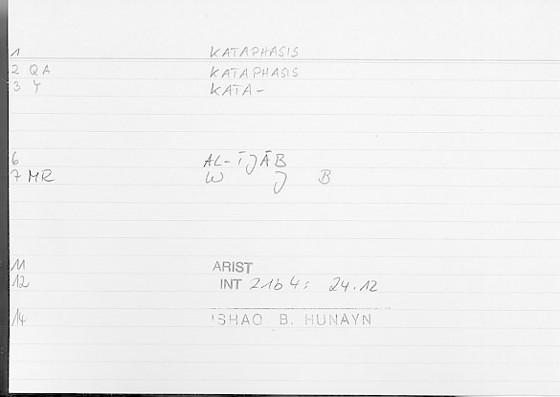 1 KATAPHASIS
2 QA KATAPHASIS
3 Y KATA-
6 AL-ĪJĀB
7 MR W J B
11 ARIST
12 INT 21b 4: 24.12
14 ISHAQ B. HUNAYN